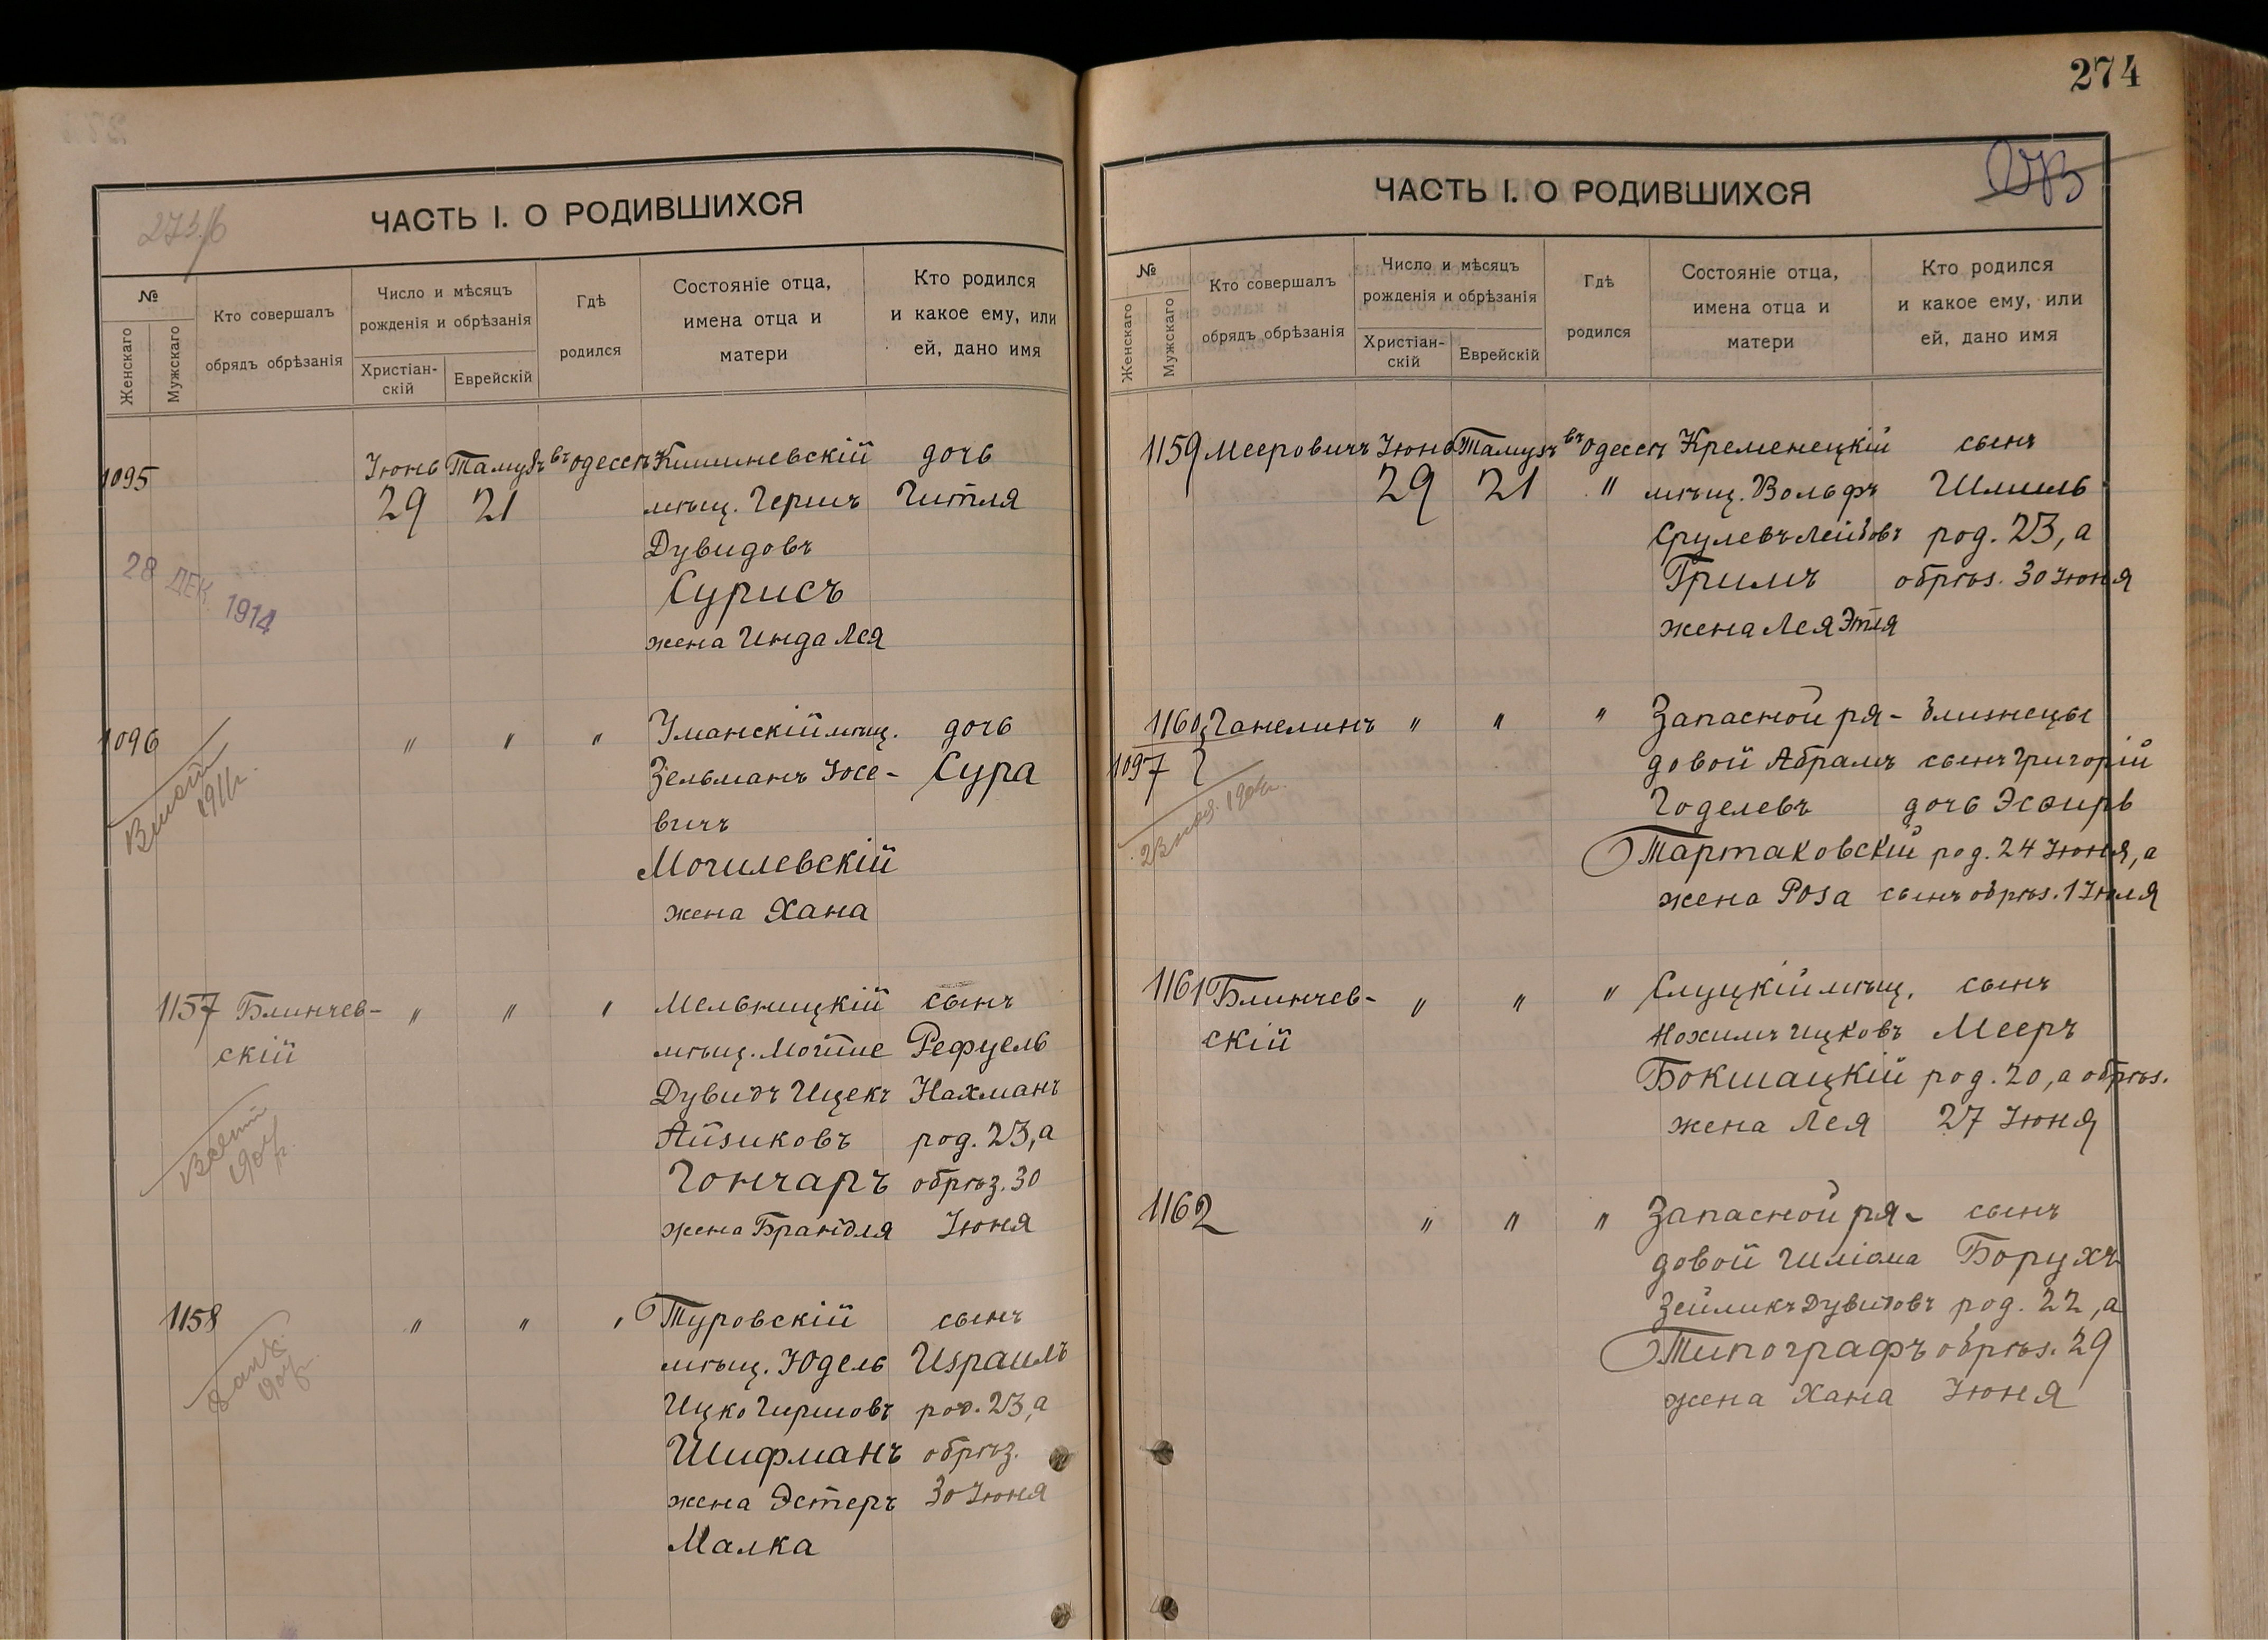 273/б
ЧАСТЬ I. О РОДИВШИХСЯ
№
Женскаго
Мужскаго
Кто совершалъ
обрядъ обрѣзанія
Число и мѣсяцъ
рожденія и обрѣзанія
Христіан-
скій
Еврейскій
Гдѣ
родился
Состояніе отца,
имена отца и
матери
Кто родился
и какое ему, или
ей, дано имя
1095 Іюнь Тамузъ въ Одессѣ Кишиневскій дочь
29 21 мѣщ. Гершъ Гитля
Дувидовъ
Сурисъ
жена Инда Лея
28 ДЕК 1914
1096 " " " Уманскій мѣщ. дочь
Зельманъ Іосе- Сура
вичъ
Могилевскій
жена Хана
1911г.
1157 Блинчев- " " " Мельницкій сынъ
скій мѣщ. Мотте Рефуель
Дувидъ Ицекъ Нахманъ
Айзиковъ род. 23, а
Гончаръ обрѣз. 30
жена Брандля Іюня
1158 " " " Туровскій сынъ
мѣщ. Юдель Израиль
Ицко Гершовъ род. 23, а
Шифманъ обрѣз.
жена Эстеръ 30 Іюня
Малка
274
ЧАСТЬ I. О РОДИВШИХСЯ
№
Женскаго
Мужскаго
Кто совершалъ
обрядъ обрѣзанія
Число и мѣсяцъ
рожденія и обрѣзанія
Христіан-
скій
Еврейскій
Гдѣ
родился
Состояніе отца,
имена отца и
матери
Кто родился
и какое ему, или
ей, дано имя
1159 Мееровичъ Іюнь Тамузъ въ Одессѣ Кременецкій сынъ
29 21 " мѣщ. Вольфъ Шмиль
Срулевъ Лейбовъ род. 23, а
Гримъ обрѣз. 30 Іюня
жена Лея Этля
1160 Ганелинъ " " " Запасной ря- близнецы
1097 довой Абрамъ сынъ Григорій
Годелевъ дочь Эсѳирь
Тартаковскій род. 24 Іюня, а
жена Роза сынъ обрѣз. 1 Іюля
1161 Блинчев- " " " Слуцкій мѣщ. сынъ
скій Нохимъ Ицковъ Мееръ
Бокшацкій род. 20, а обрѣз.
жена Лея 27 Іюня
1162 " " " Запасной ря- сынъ
довой Шліома Борухъ
Зейликъ Дувидовъ род. 22, а
Типографъ обрѣз. 29
жена Хана Іюня